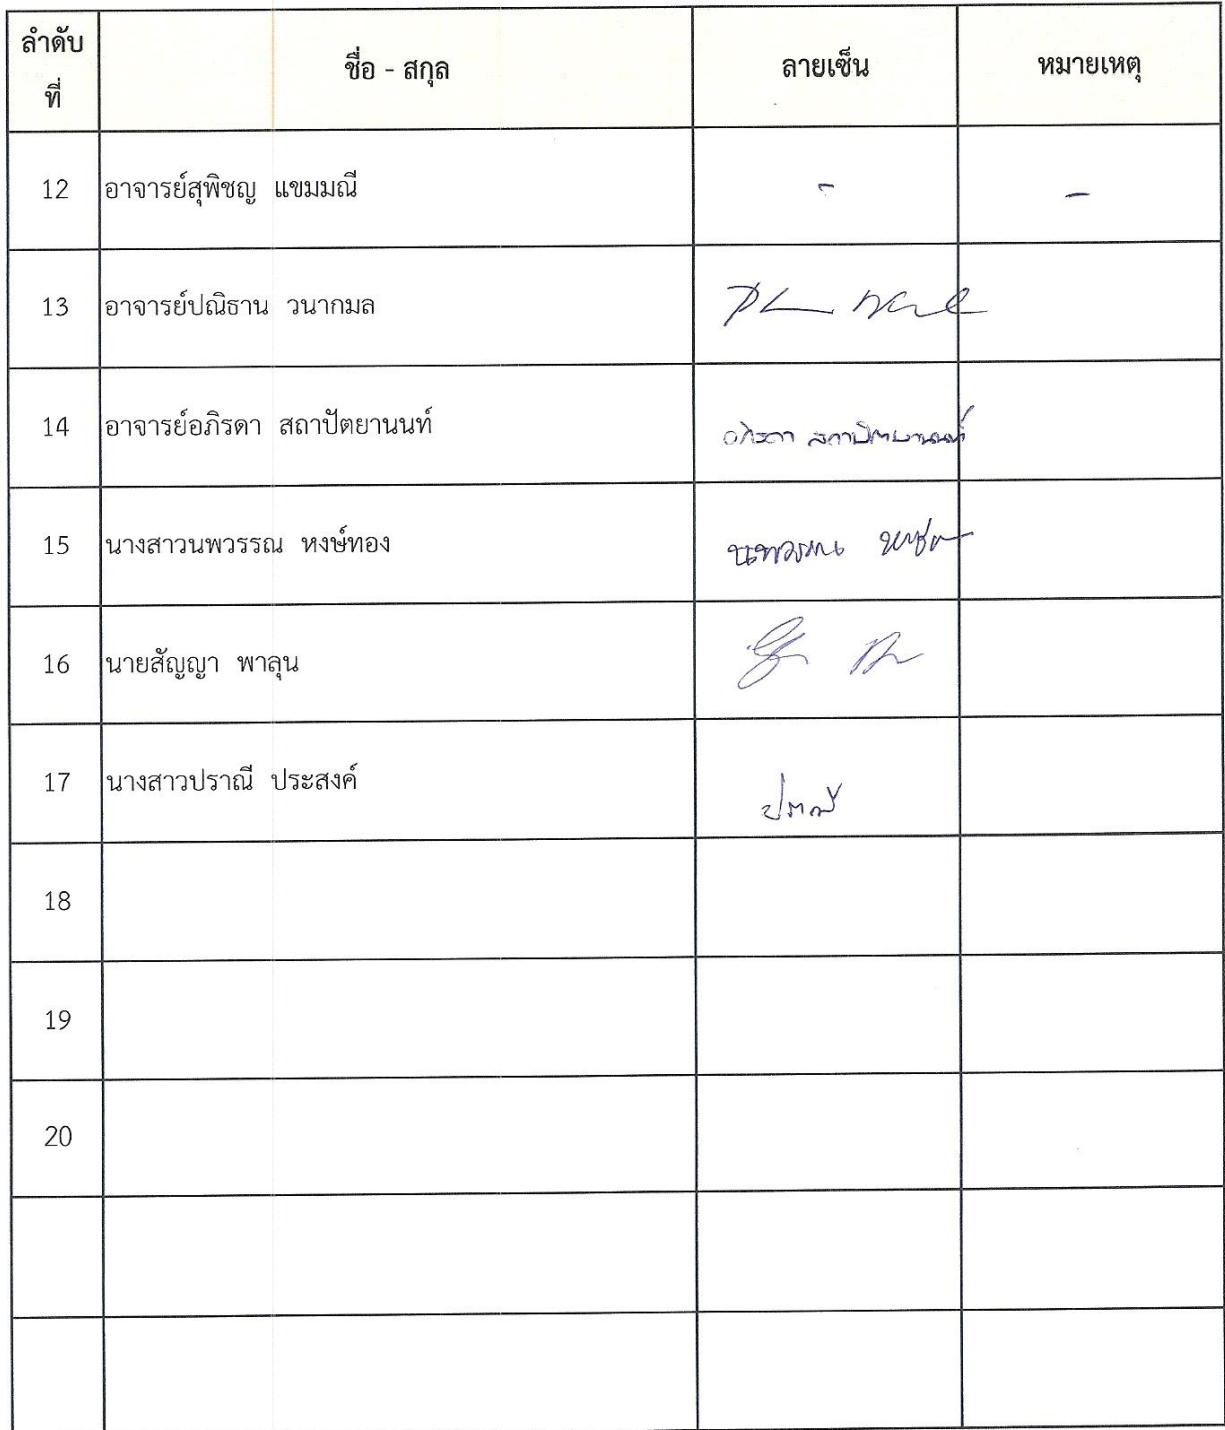 ลำดับที่ ชื่อ - สกุล ลายเซ็น หมายเหตุ
12 อาจารย์สุพิชญ แขมมณี - -
13 อาจารย์ปณิธาน วนากมล
14 อาจารย์อภิรดา สถาปัตยานนท์ อภิรดา สถาปัตยานนท์
15 นางสาวนพวรรณ หงษ์ทอง นพวรรณ
16 นายสัญญา พาลุน
17 นางสาวปราณี ประสงค์ ปราณี
18
19
20